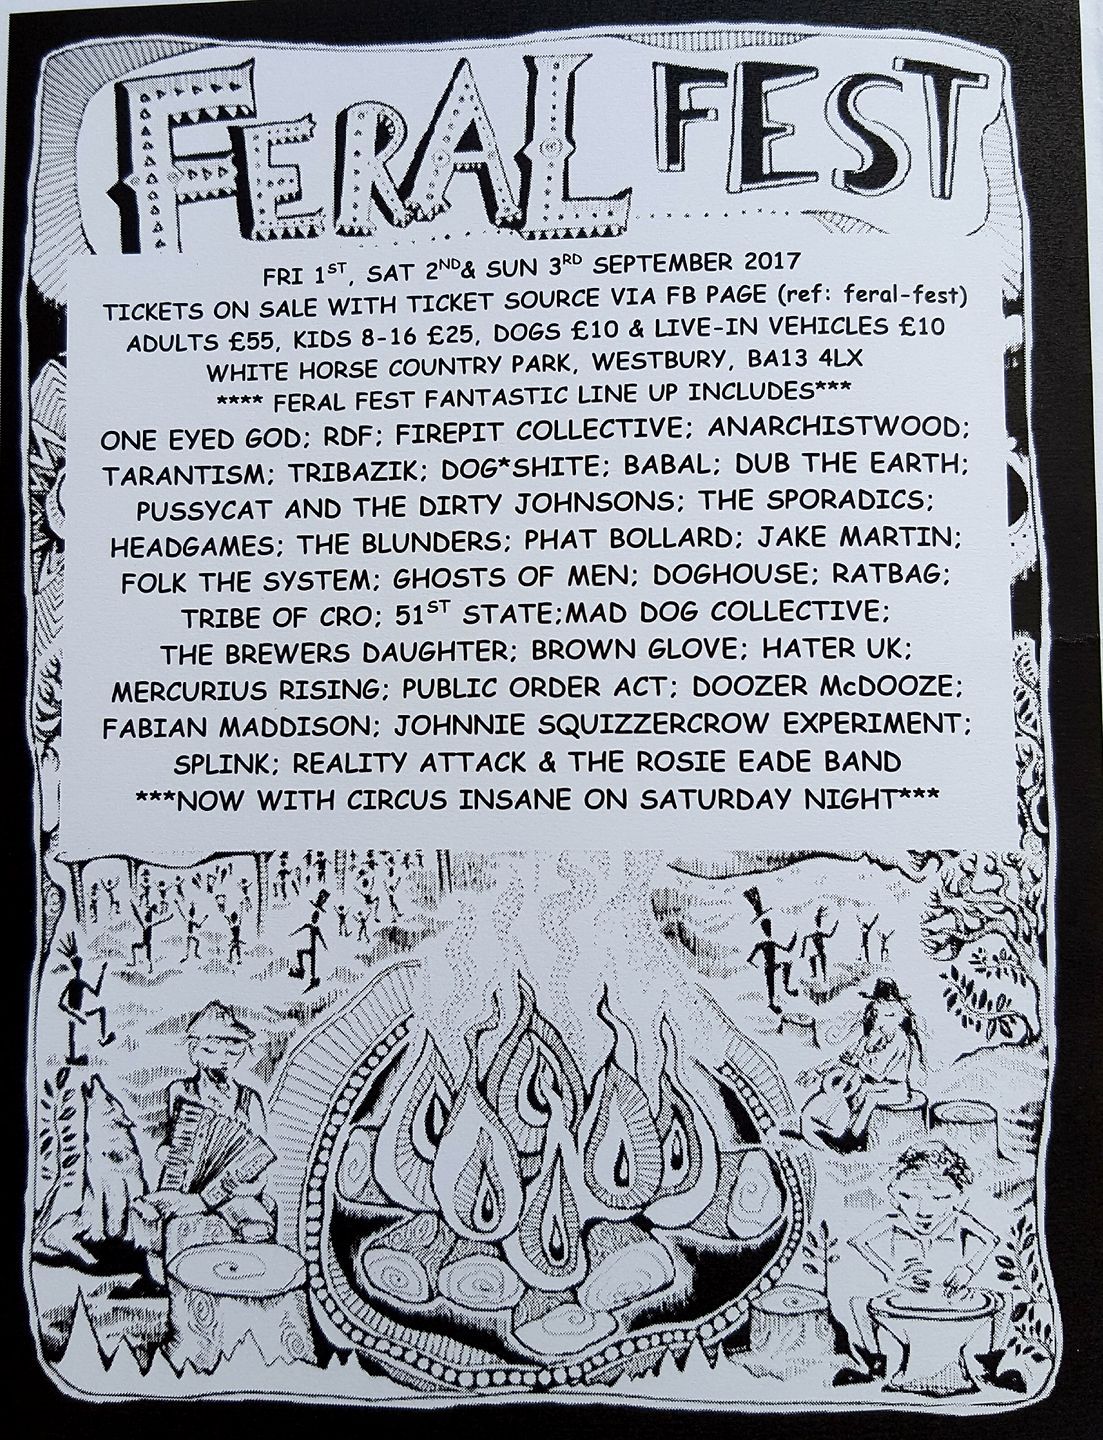 FERAL FEST
FRI 1ST, SAT 2ND& SUN 3RD SEPTEMBER 2017
TICKETS ON SALE WITH TICKET SOURCE VIA FB PAGE (ref: feral-fest)
ADULTS £55, KIDS 8-16 £25, DOGS £10 & LIVE-IN VEHICLES £10
WHITE HORSE COUNTRY PARK, WESTBURY, BA13 4LX
**** FERAL FEST FANTASTIC LINE UP INCLUDES***
ONE EYED GOD; RDF; FIREPIT COLLECTIVE; ANARCHISTWOOD;
TARANTISM; TRIBAZIK; DOG*SHITE; BABAL; DUB THE EARTH;
PUSSYCAT AND THE DIRTY JOHNSONS; THE SPORADICS;
HEADGAMES; THE BLUNDERS; PHAT BOLLARD; JAKE MARTIN;
FOLK THE SYSTEM; GHOSTS OF MEN; DOGHOUSE; RATBAG;
TRIBE OF CRO; 51ST STATE;MAD DOG COLLECTIVE;
THE BREWERS DAUGHTER; BROWN GLOVE; HATER UK;
MERCURIUS RISING; PUBLIC ORDER ACT; DOOZER McDOOZE;
FABIAN MADDISON; JOHNNIE SQUIZZERCROW EXPERIMENT;
SPLINK; REALITY ATTACK & THE ROSIE EADE BAND
***NOW WITH CIRCUS INSANE ON SATURDAY NIGHT***